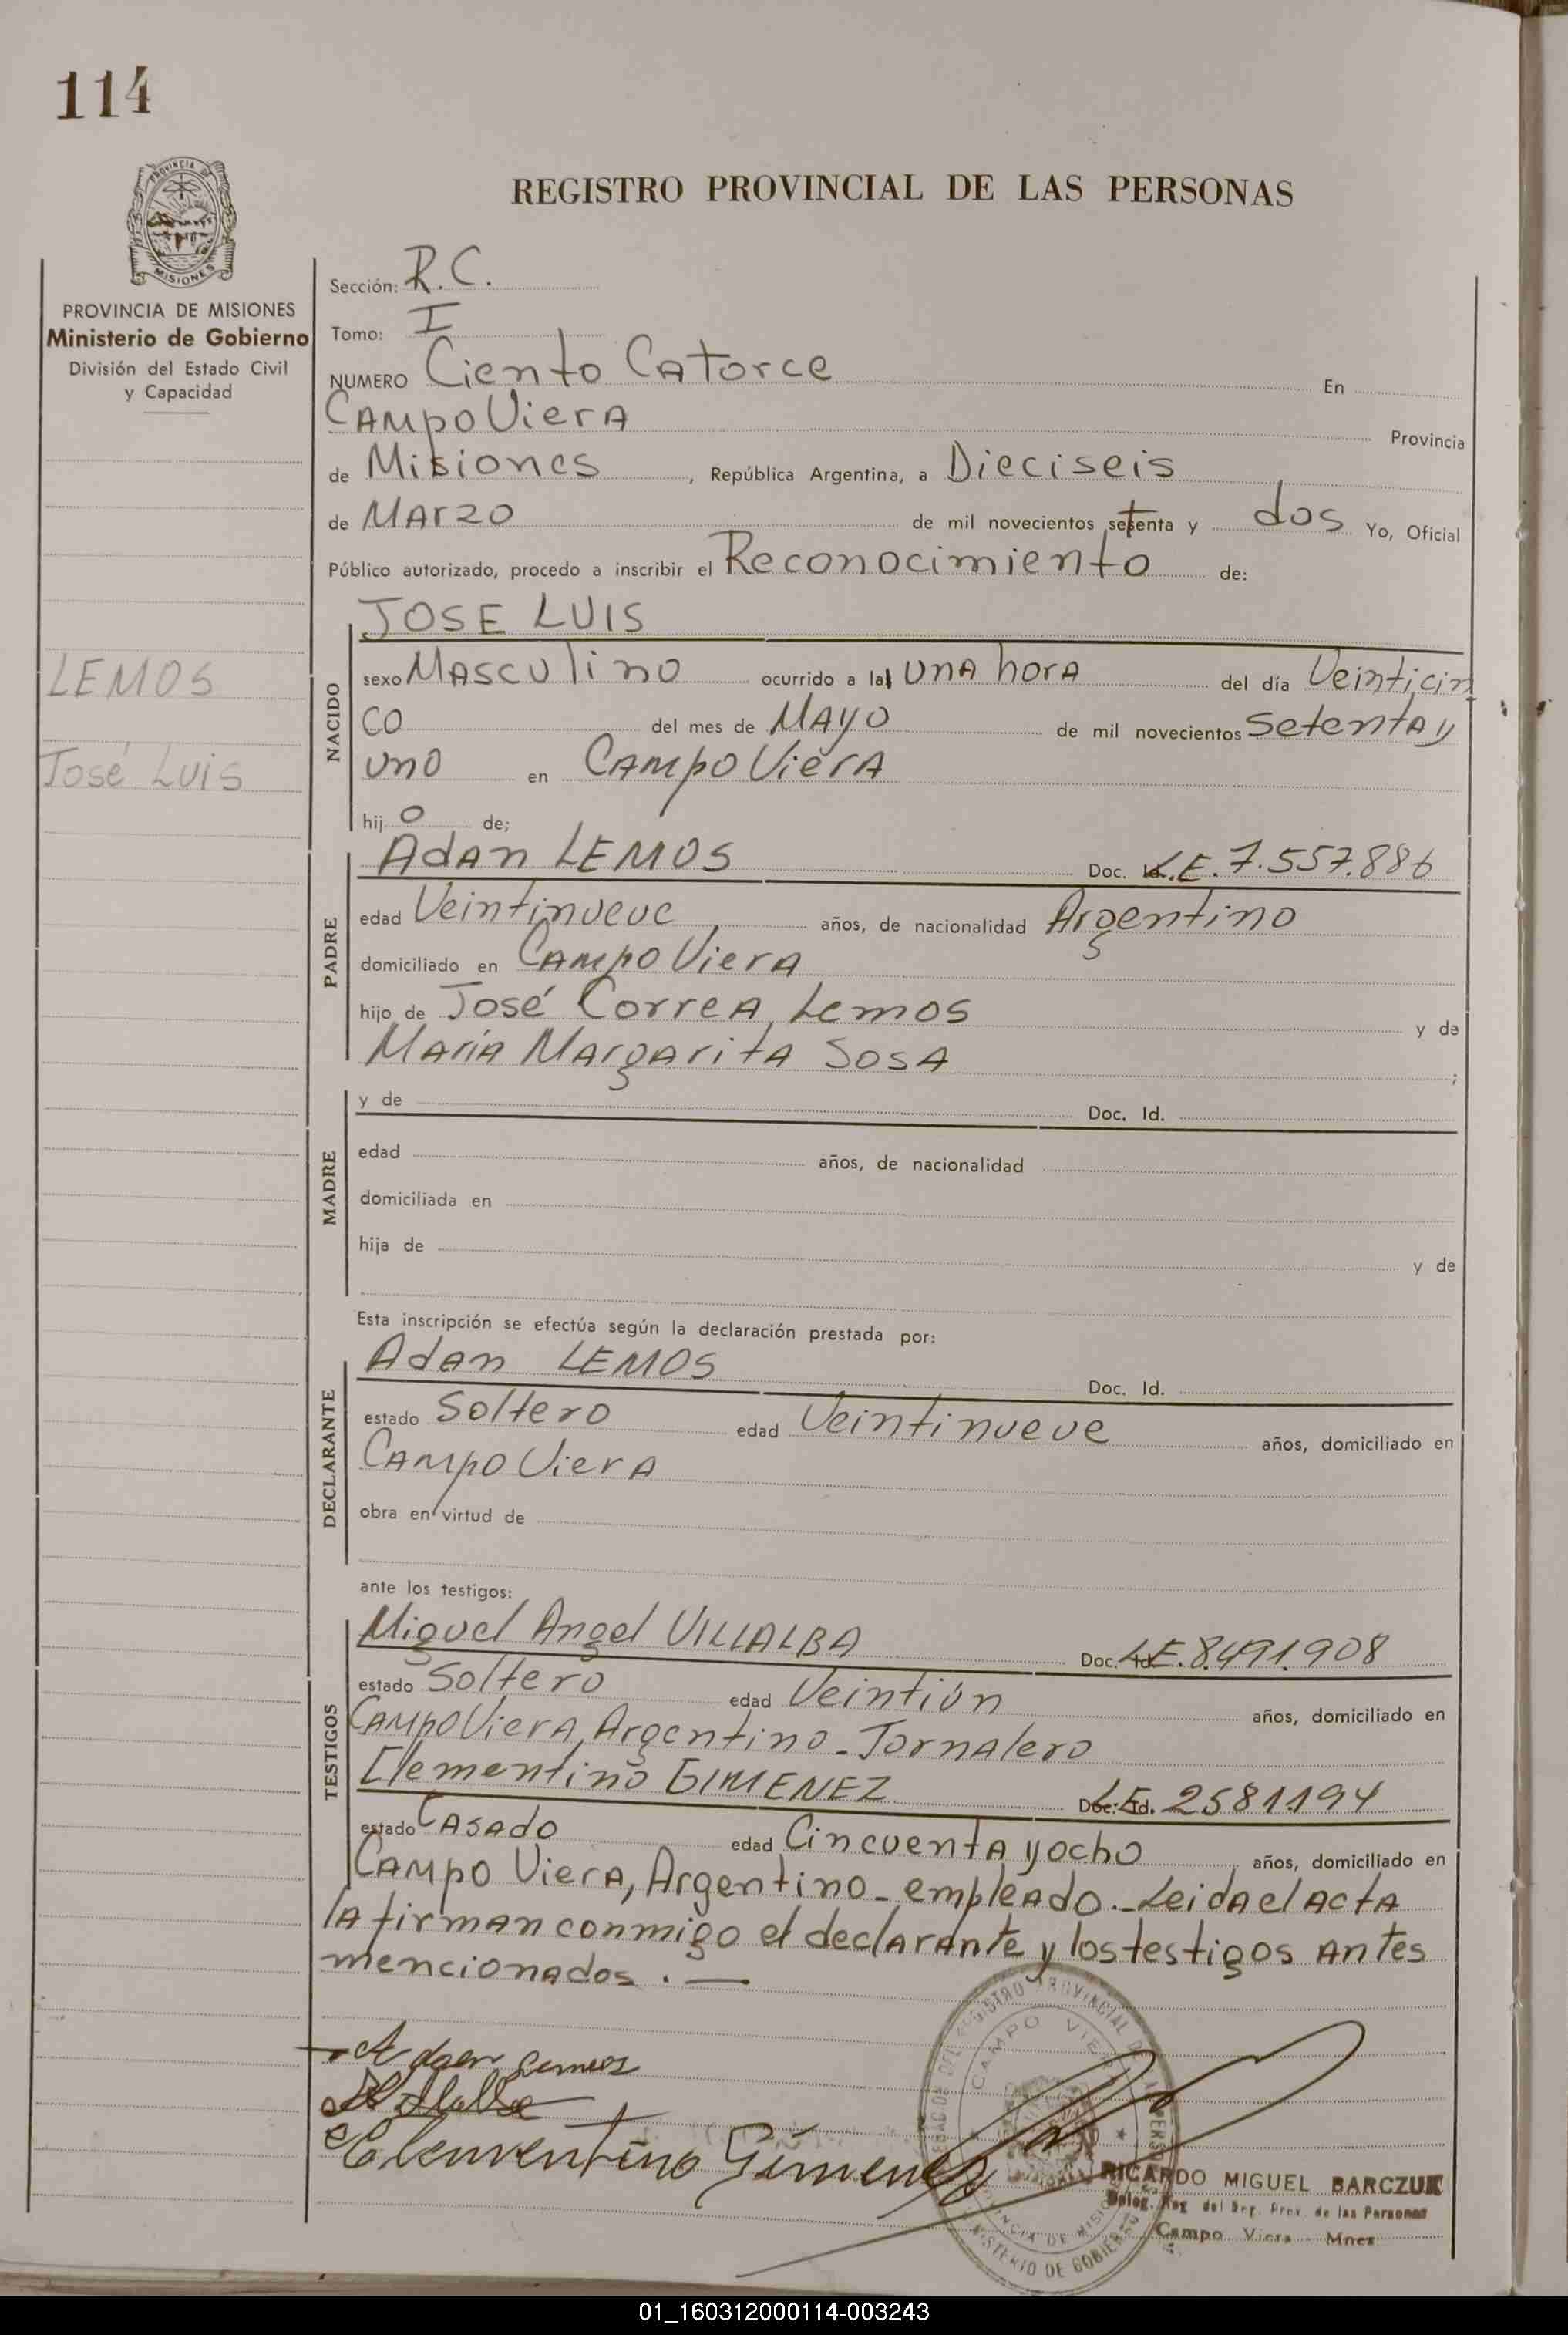 114
PROVINCIA DE
MISIONES
REGISTRO PROVINCIAL DE LAS PERSONAS
PROVINCIA DE MISIONES
Ministerio de Gobierno
División del Estado Civil
y Capacidad
LEMOS
José Luis
Sección: R.C.
Tomo: I
NUMERO Ciento Catorce En
Campo Viera Provincia
de Misiones, República Argentina, a Dieciseis
de Marzo de mil novecientos setenta y dos Yo, Oficial
Público autorizado, procedo a inscribir el Reconocimiento de:
NACIDO
JOSE LUIS
sexo Masculino ocurrido a la una hora del día Veinticin
co del mes de Mayo de mil novecientos Setenta y
uno en Campo Viera
hijo de;
PADRE
Adan LEMOS Doc. L.E. 7.557.886
edad Veintinueve años, de nacionalidad Argentino
domiciliado en Campo Viera
hijo de José Correa Lemos y de
María Margarita Sosa ;
MADRE
y de Doc. Id.
edad años, de nacionalidad
domiciliada en
hija de y de
Esta inscripción se efectúa según la declaración prestada por:
DECLARANTE
Adan LEMOS Doc. Id.
estado Soltero edad Veintinueve años, domiciliado en
Campo Viera
obra en virtud de
ante los testigos:
TESTIGOS
Miguel Angel VILLALBA Doc. L.E. 8.491.908
estado Soltero edad Veintiún años, domiciliado en
Campo Viera, Argentino - Jornalero
Clementino GIMENEZ Doc. L.E. 2581194
estado Casado edad Cincuenta y ocho años, domiciliado en
Campo Viera, Argentino - empleado.- Leida el acta
la firman conmigo el declarante y los testigos antes
mencionados. —
Adan Lemos
Clementino Gimenez
REGISTRO PROVINCIAL DE LAS PERSONAS
CAMPO VIERA
PROVINCIA DE MISIONES
MINISTERIO DE GOBIERNO
RICARDO MIGUEL BARCZUK
Deleg. Reg. del Reg. Prov. de las Personas
Campo Viera - Mnes
01_160312000114-003243